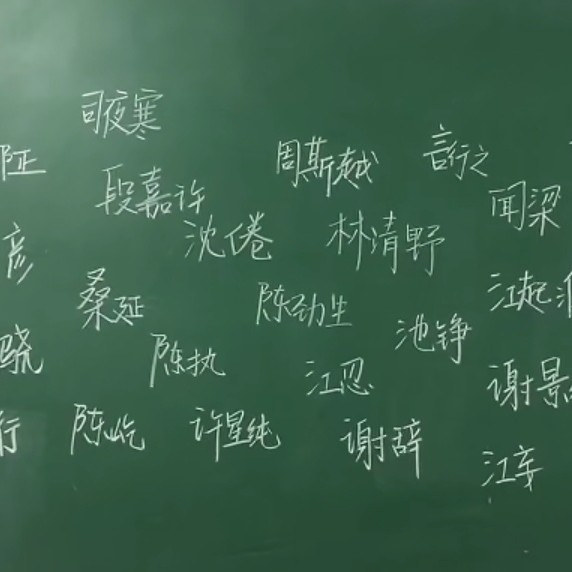 司夜寒
阵
周斯越
言行之
段嘉许
闻梁
沈倦
林清野
彦
桑延
陈劲生
江起淮
池铮
骁
陈执
江忍
谢景
行
陈屹
许星纯
谢辞
江妄